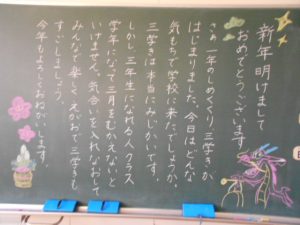 新年明けまして
おめでとうございます
さあ一年のしめくくり、三学きが
はじまりました。今日はどんな
気もちで学校に来たでしょうか。
三学きは本当にみじかいです。
しかし、三年生になれる人、クラス
学年になって三月をむかえないと
いけません。気合いを入れなおして、
みんなで楽しくえがおで三学きも
すごしましょう。
今年もよろしくおねがいします。